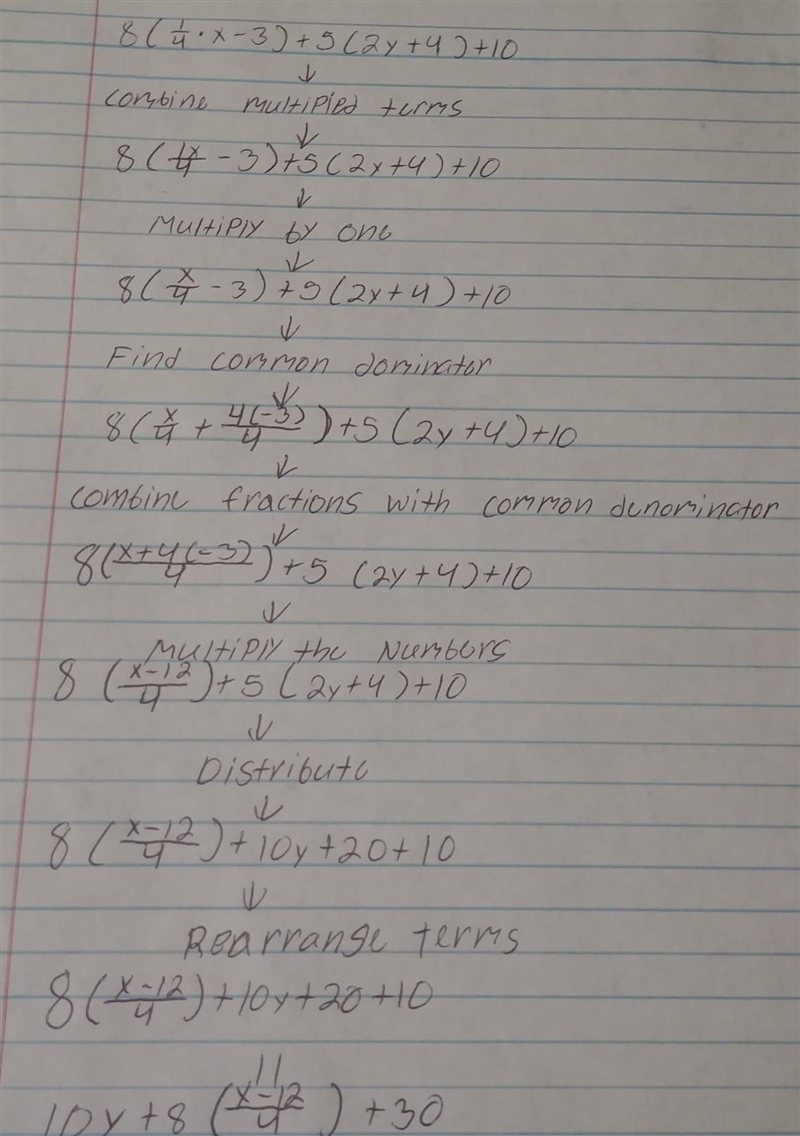 8(1/4 · x - 3) + 5(2y + 4) + 10
↓
Combine multiplied terms
↓
8(1x/4 - 3) + 5(2y + 4) + 10
↓
Multiply by one
↓
8(x/4 - 3) + 5(2y + 4) + 10
↓
Find common dominator
↓
8(x/4 + 4(-3)/4) + 5(2y + 4) + 10
↓
Combine fractions with common denominator
↓
8(x+4(-3)/4) + 5 (2y + 4) + 10
↓
Multiply the numbers
8 (x-12/4) + 5 (2y + 4) + 10
↓
Distribute
↓
8 (x-12/4) + 10y + 20 + 10
↓
Rearrange terms
8(x-12/4) + 10y + 20 + 10
||
10y + 8 (x-12/4) + 30